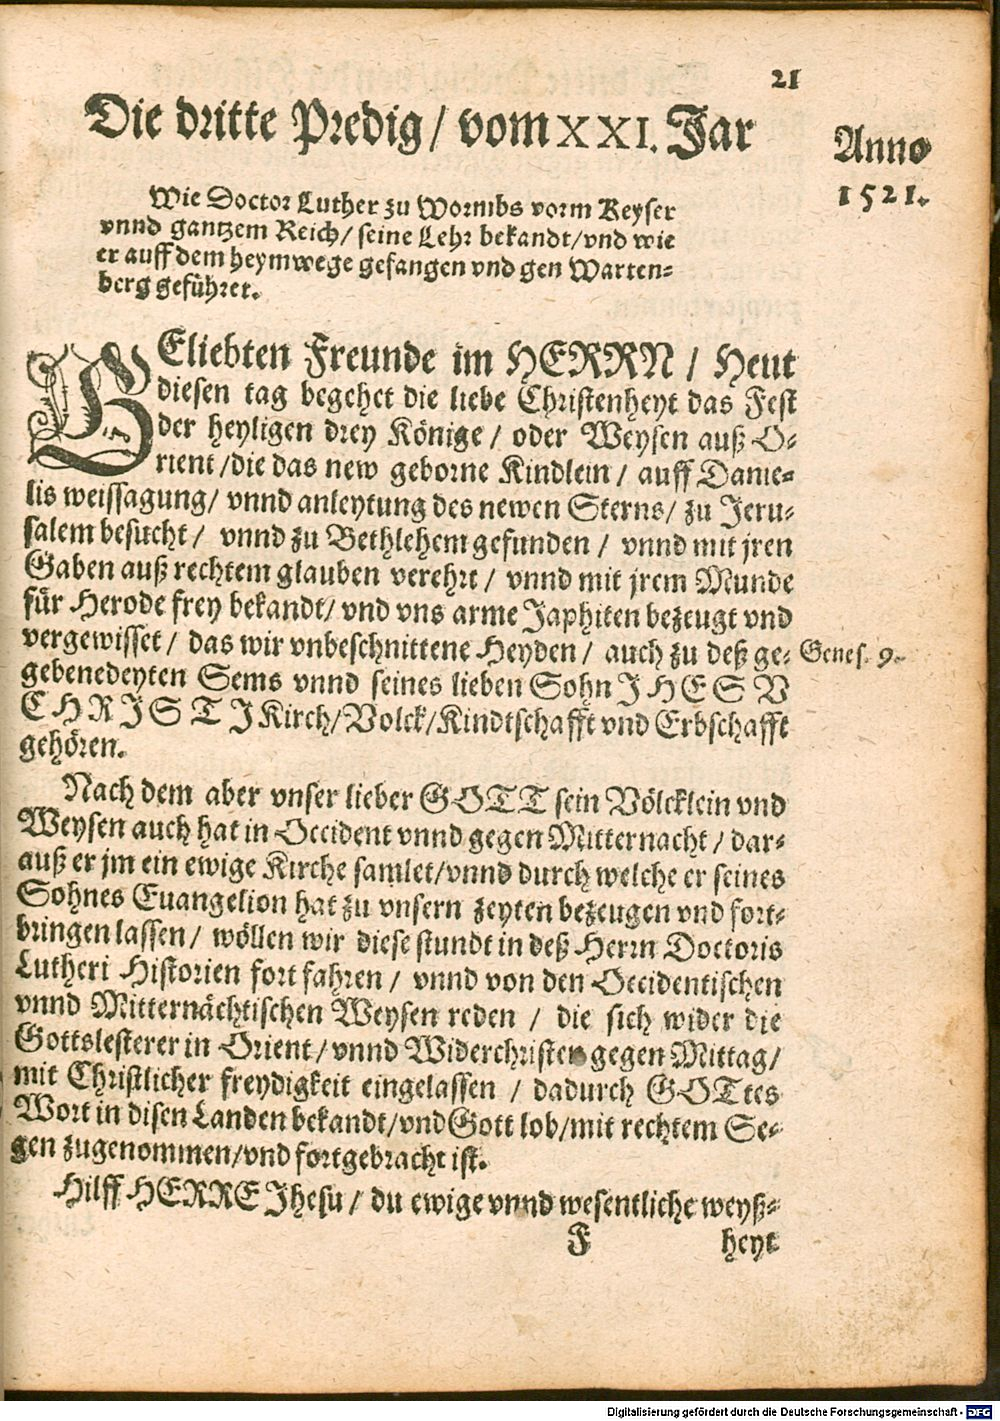 21
Die dritte Predig / vom XXI. Jar
Anno
1521.
Wie Doctor Luther zu Wormbs vorm Keyser
vnnd gantzem Reich / seine Lehr bekandt / vnd wie
er auff dem heymwege gefangen vnd gen Warten-
berg geführet.
GEliebten Freunde im HERRN / Heut
diesen tag begehet die liebe Christenheyt das Fest
der heyligen drey Könige / oder Weysen auß O-
rient / die das new geborne Kindlein / auff Danie-
lis weissagung / vnnd anleytung des newen Sterns / zu Jeru-
salem besucht / vnnd zu Bethlehem gefunden / vnnd mit jren
Gaben auß rechtem glauben verehrt / vnnd mit jrem Munde
für Herode frey bekandt / vnd vns arme Japhiten bezeugt vnd
vergewisset / das wir vnbeschnittene Heyden / auch zu deß ge-
Genes. 9.
gebenedeyten Sems vnnd seines lieben Sohn JHESV
CHRISTI Kirch / Volck / Kindtschafft vnd Erbschafft
gehören.
Nach dem aber vnser lieber GOTT sein Völcklein vnd
Weysen auch hat in Occident vnnd gegen Mitternacht / dar-
auß er jm ein ewige Kirche samlet / vnnd durch welche er seines
Sohnes Euangelion hat zu vnsern zeyten bezeugen vnd fort-
bringen lassen / wöllen wir diese stundt in deß Herrn Doctoris
Lutheri Historien fort fahren / vnnd von den Occidentischen
vnnd Mitternächtischen Weysen reden / die sich wider die
Gottslesterer in Orient / vnnd Widerchristen gegen Mittag /
mit Christlicher freydigkeit eingelassen / dadurch GOTtes
Wort in disen Landen bekandt / vnd Gott lob / mit rechtem Se-
gen zugenommen / vnd fortgebracht ist.
Hilff HERRE Jhesu / du ewige vnnd wesentliche weyß-
F heyt
Digitalisierung gefördert durch die Deutsche Forschungsgemeinschaft - DFG